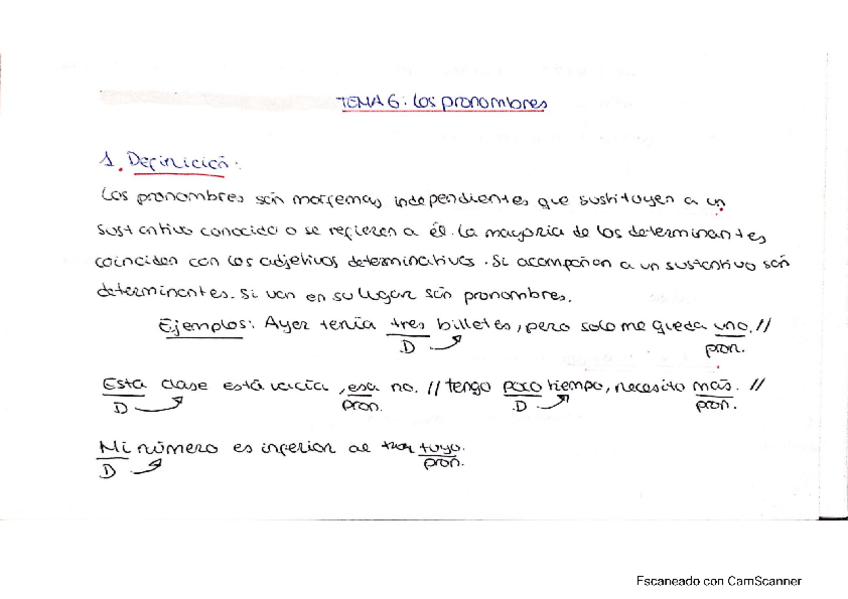 TEMA 6: Los pronombres
1. Definición:
Los pronombres són morfemas independientes que sustituyen a un
sustantivo conocido o se refieren a él. La mayoría de los determinantes
coinciden con los adjetivos determinativos. Si acompañan a un sustantivo són
determinantes. Si van en su lugar són pronombres.
Ejemplos: Ayer tenía tres billetes, pero solo me queda uno. //
D pron.
Esta clase está vacía, esa no. // tengo poco tiempo, necesito más. //
D pron. D pron.
Mi número es inferior al tuyo.
D pron.
Escaneado con CamScanner